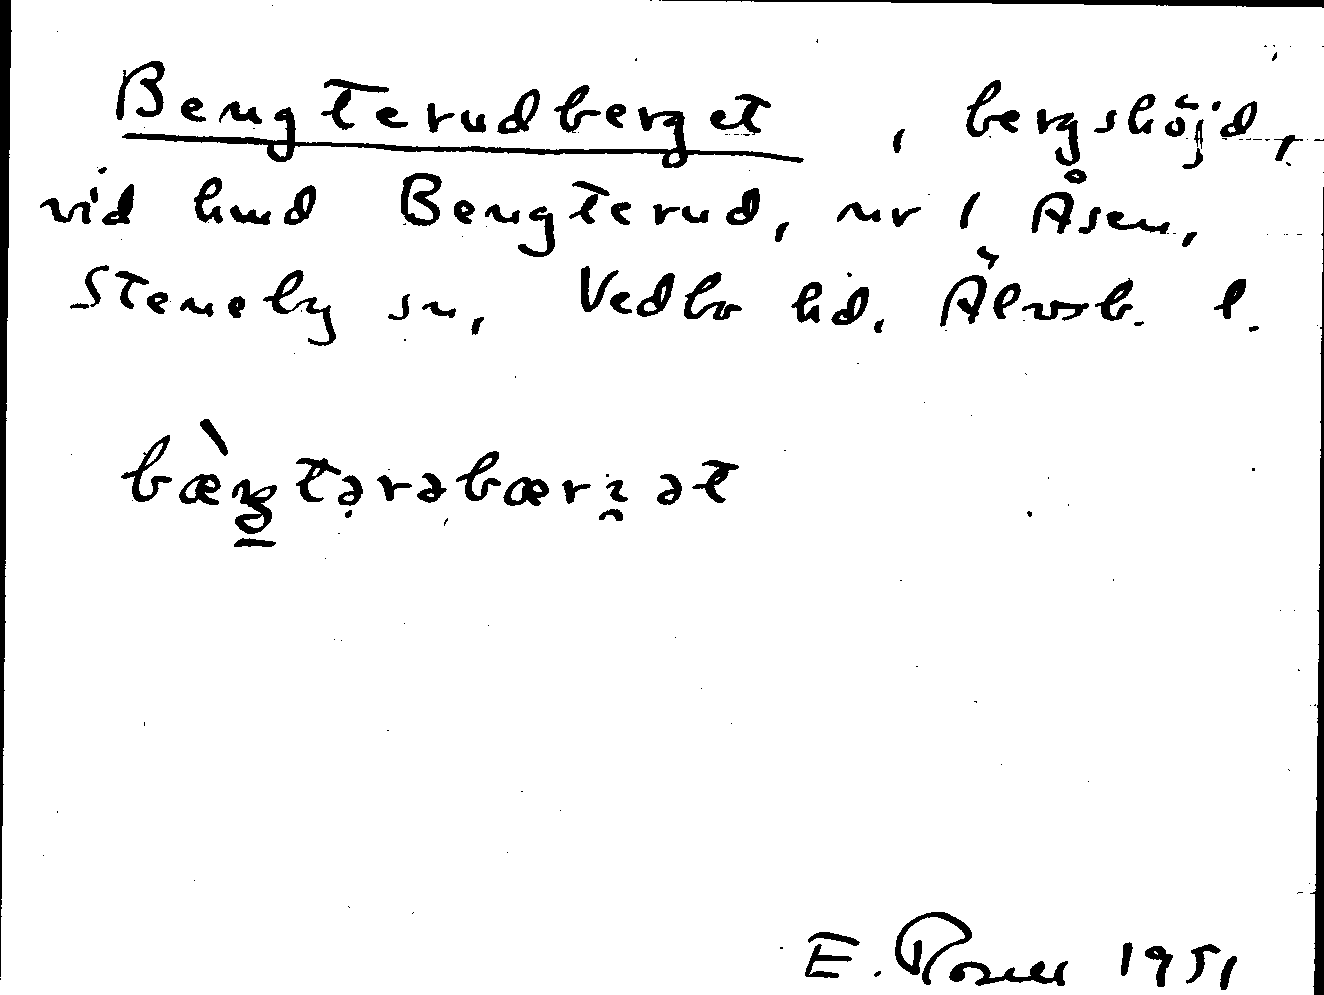 Bengterudberget, bergshöjd,
vid hmd Bengterud, nr 1 Åsen,
Steneby sn, Vedbo hd. Älvsb. l.
bæ̀ŋtərəbærɜ̯ət
E. Rosell 1951